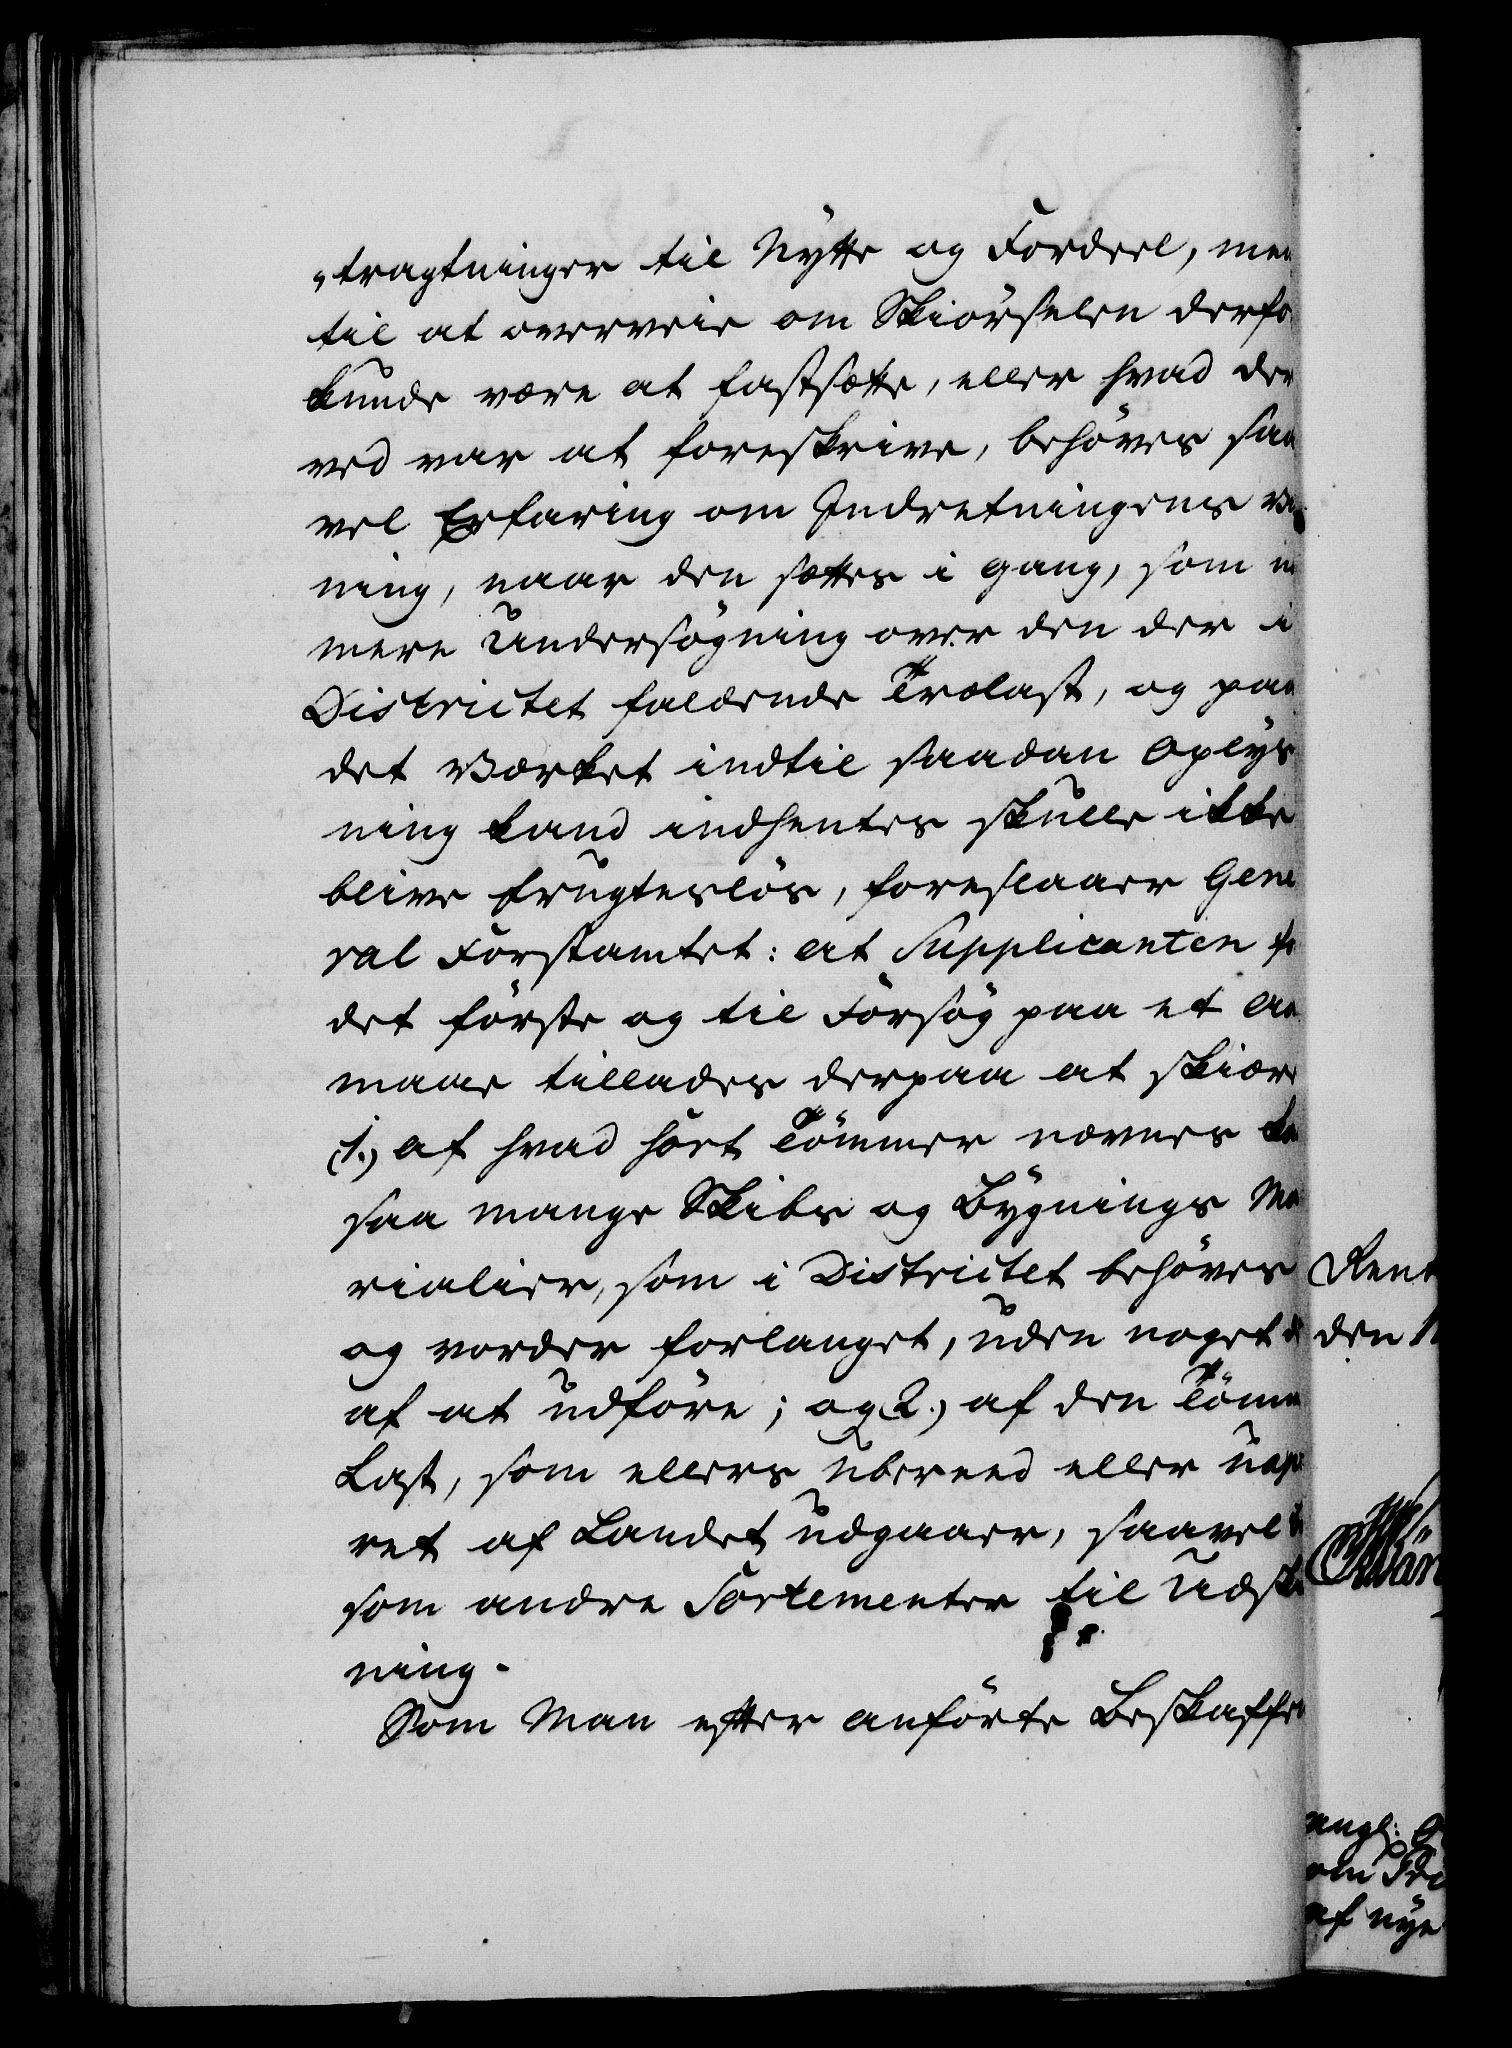 „tragtninger til Nytte og Fordeel, men
til at overveie om Skiørselen derfo
kunde være at fastsætte, eller hvad der
ved var at foreskrive, behøves saa
vel Erfaring om Indretningens
ning, naar den sættes i gang, som
mere Undersøgning over den der i
Districtet faldende Trælast, og paa
det Værket indtil saadan Oplys
ning kand indhentes skulle ikke
blive frugtesløs, foreslaaer Gene
ral Forstamtet: at Supplicanten
det første og til Forsøg paa et
maae tillades derpaa at skiære
1.) af hvad sort Tömmer nævnes
saa mange Skibs og Bygnings Ma
rialier, som i Districtet behøves
og vorder forlanget, uden noget
af at udføre; og 2.) af den Tömm
Last, som ellers ubereed eller
ret af Landet udgaaer, saavel
som andre Sortementer til Udsk
ning.
Som Man efter anførte Beskaffen
Rent
den
om
af nye